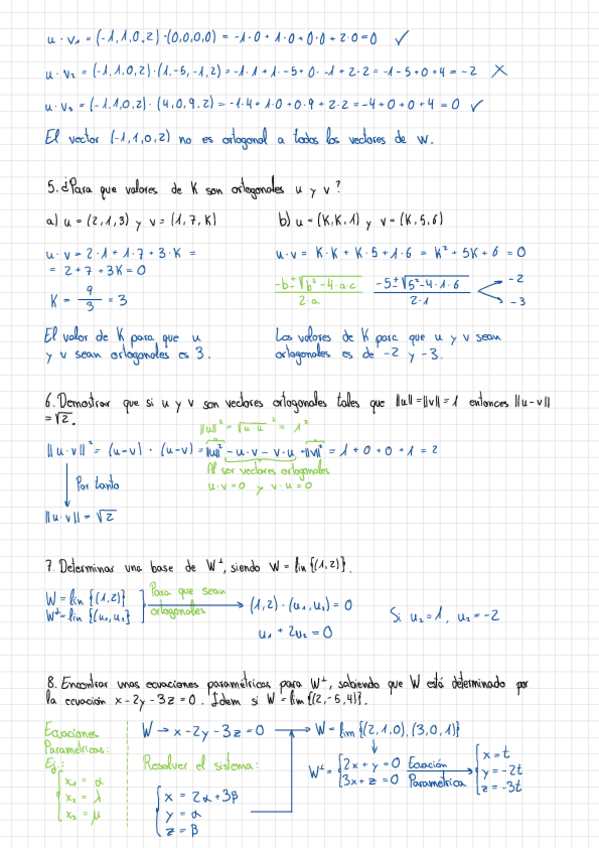 u · v₁ = (-1,1,0,2) · (0,0,0,0) = -1·0 + 1·0 + 0·0 + 2·0 = 0 ✓
u · v₂ = (-1,1,0,2) · (1,-5,-1,2) = -1·1 + 1·-5 + 0·-1 + 2·2 = -1-5+0+4 = -2 ✗
u · v₃ = (-1,1,0,2) · (4,0,9,2) = -1·4 + 1·0 + 0·9 + 2·2 = -4+0+0+4 = 0 ✓
El vector (-1,1,0,2) no es ortogonal a todos los vectores de W.
5. ¿Para que valores de K son ortogonales u y v?
a) u = (2,1,3) y v = (1,7,K)
b) u = (K,K,1) y v = (K,5,6)
u · v = 2·1 + 1·7 + 3·K =
= 2+7+3K = 0
K = 9/3 = 3
El valor de K para que u
y v sean ortogonales es 3.
u·v = K·K + K·5 + 1·6 = K² + 5K + 6 = 0
-b±√b²-4·a·c / 2·a
-5±√5²-4·1·6 / 2·1
-2
-3
Los valores de K para que u y v sean
ortogonales es de -2 y -3.
6. Demostrar que si u y v son vectores ortogonales tales que ||u||=||v||=1 entonces ||u-v||
=√2.
||u||² = √u·u² = 1²
||u·v||² = (u-v) · (u-v) = ||u||² - u·v - v·u + ||v||² = 1+0+0+1 = 2
Al ser vectores ortogonales
u·v=0 y v·u=0
Por tanto
||u·v|| = √2
7. Determinar una base de W⊥, siendo W = lin {(1,2)}.
W = lin {(1,2)}
W⊥ = lin {(u₁,u₂)}
Para que sean
ortogonales
(1,2) · (u₁,u₂) = 0
u₁ + 2u₂ = 0
Si u₂=1, u₁=-2
8. Encontrar unas ecuaciones paramétricas para W⊥, sabiendo que W está determinado por
la ecuación x-2y-3z=0. Idem si W = lim {(2,-5,4)}.
Ecuaciones
Paramétricas:
Ej.:
x₁ = α
x₂ = λ
x₃ = μ
W → x-2y-3z=0
Resolver el sistema:
x = 2α+3β
y = α
z = β
W = lim {(2,1,0),(3,0,1)}
W⊥ = 2x+y=0
3x+z=0
Ecuación
Paramétrica
x=t
y=-2t
z=-3t